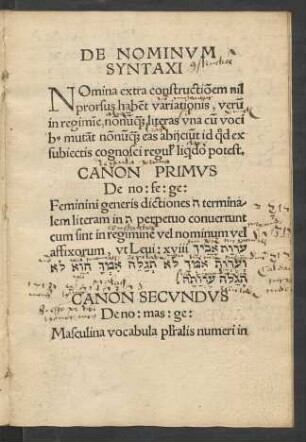 DE NOMINVM
SYNTAXI
NOmina extra constructiōem nil
prorsus habēt variationis, verū
in regimīe, nōnūq̄; literas vna cū voca
bꝰ mutāt nōnūq̄; eas abijciūt id qd̄ ex
subiectis cognosci regul̄ liqdo potest.
CANON PRIMVS
De no: fe: ge:
Feminini generis dictiones ה termina
lem literam in ת perpetuo conuertunt
cum sint in regimine vel nominum vel
affixorum, vt Leui: xviij ערות אביך
וערות אמך לא תגלה אמך הוא לא
תגלה ערותה
CANON SECVNDVS
De no: mas: ge:
Masculina vocabula pl̄ralis numeri in